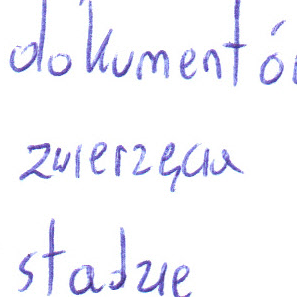 dokumentó
zwierzęcia
stadzie